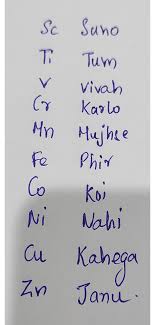 Sc Suno
Ti Tum
V Vivah
Cr Karlo
Mn Mujhse
Fe Phir
Co Koi
Ni Nahi
Cu Kahega
Zn Janu.